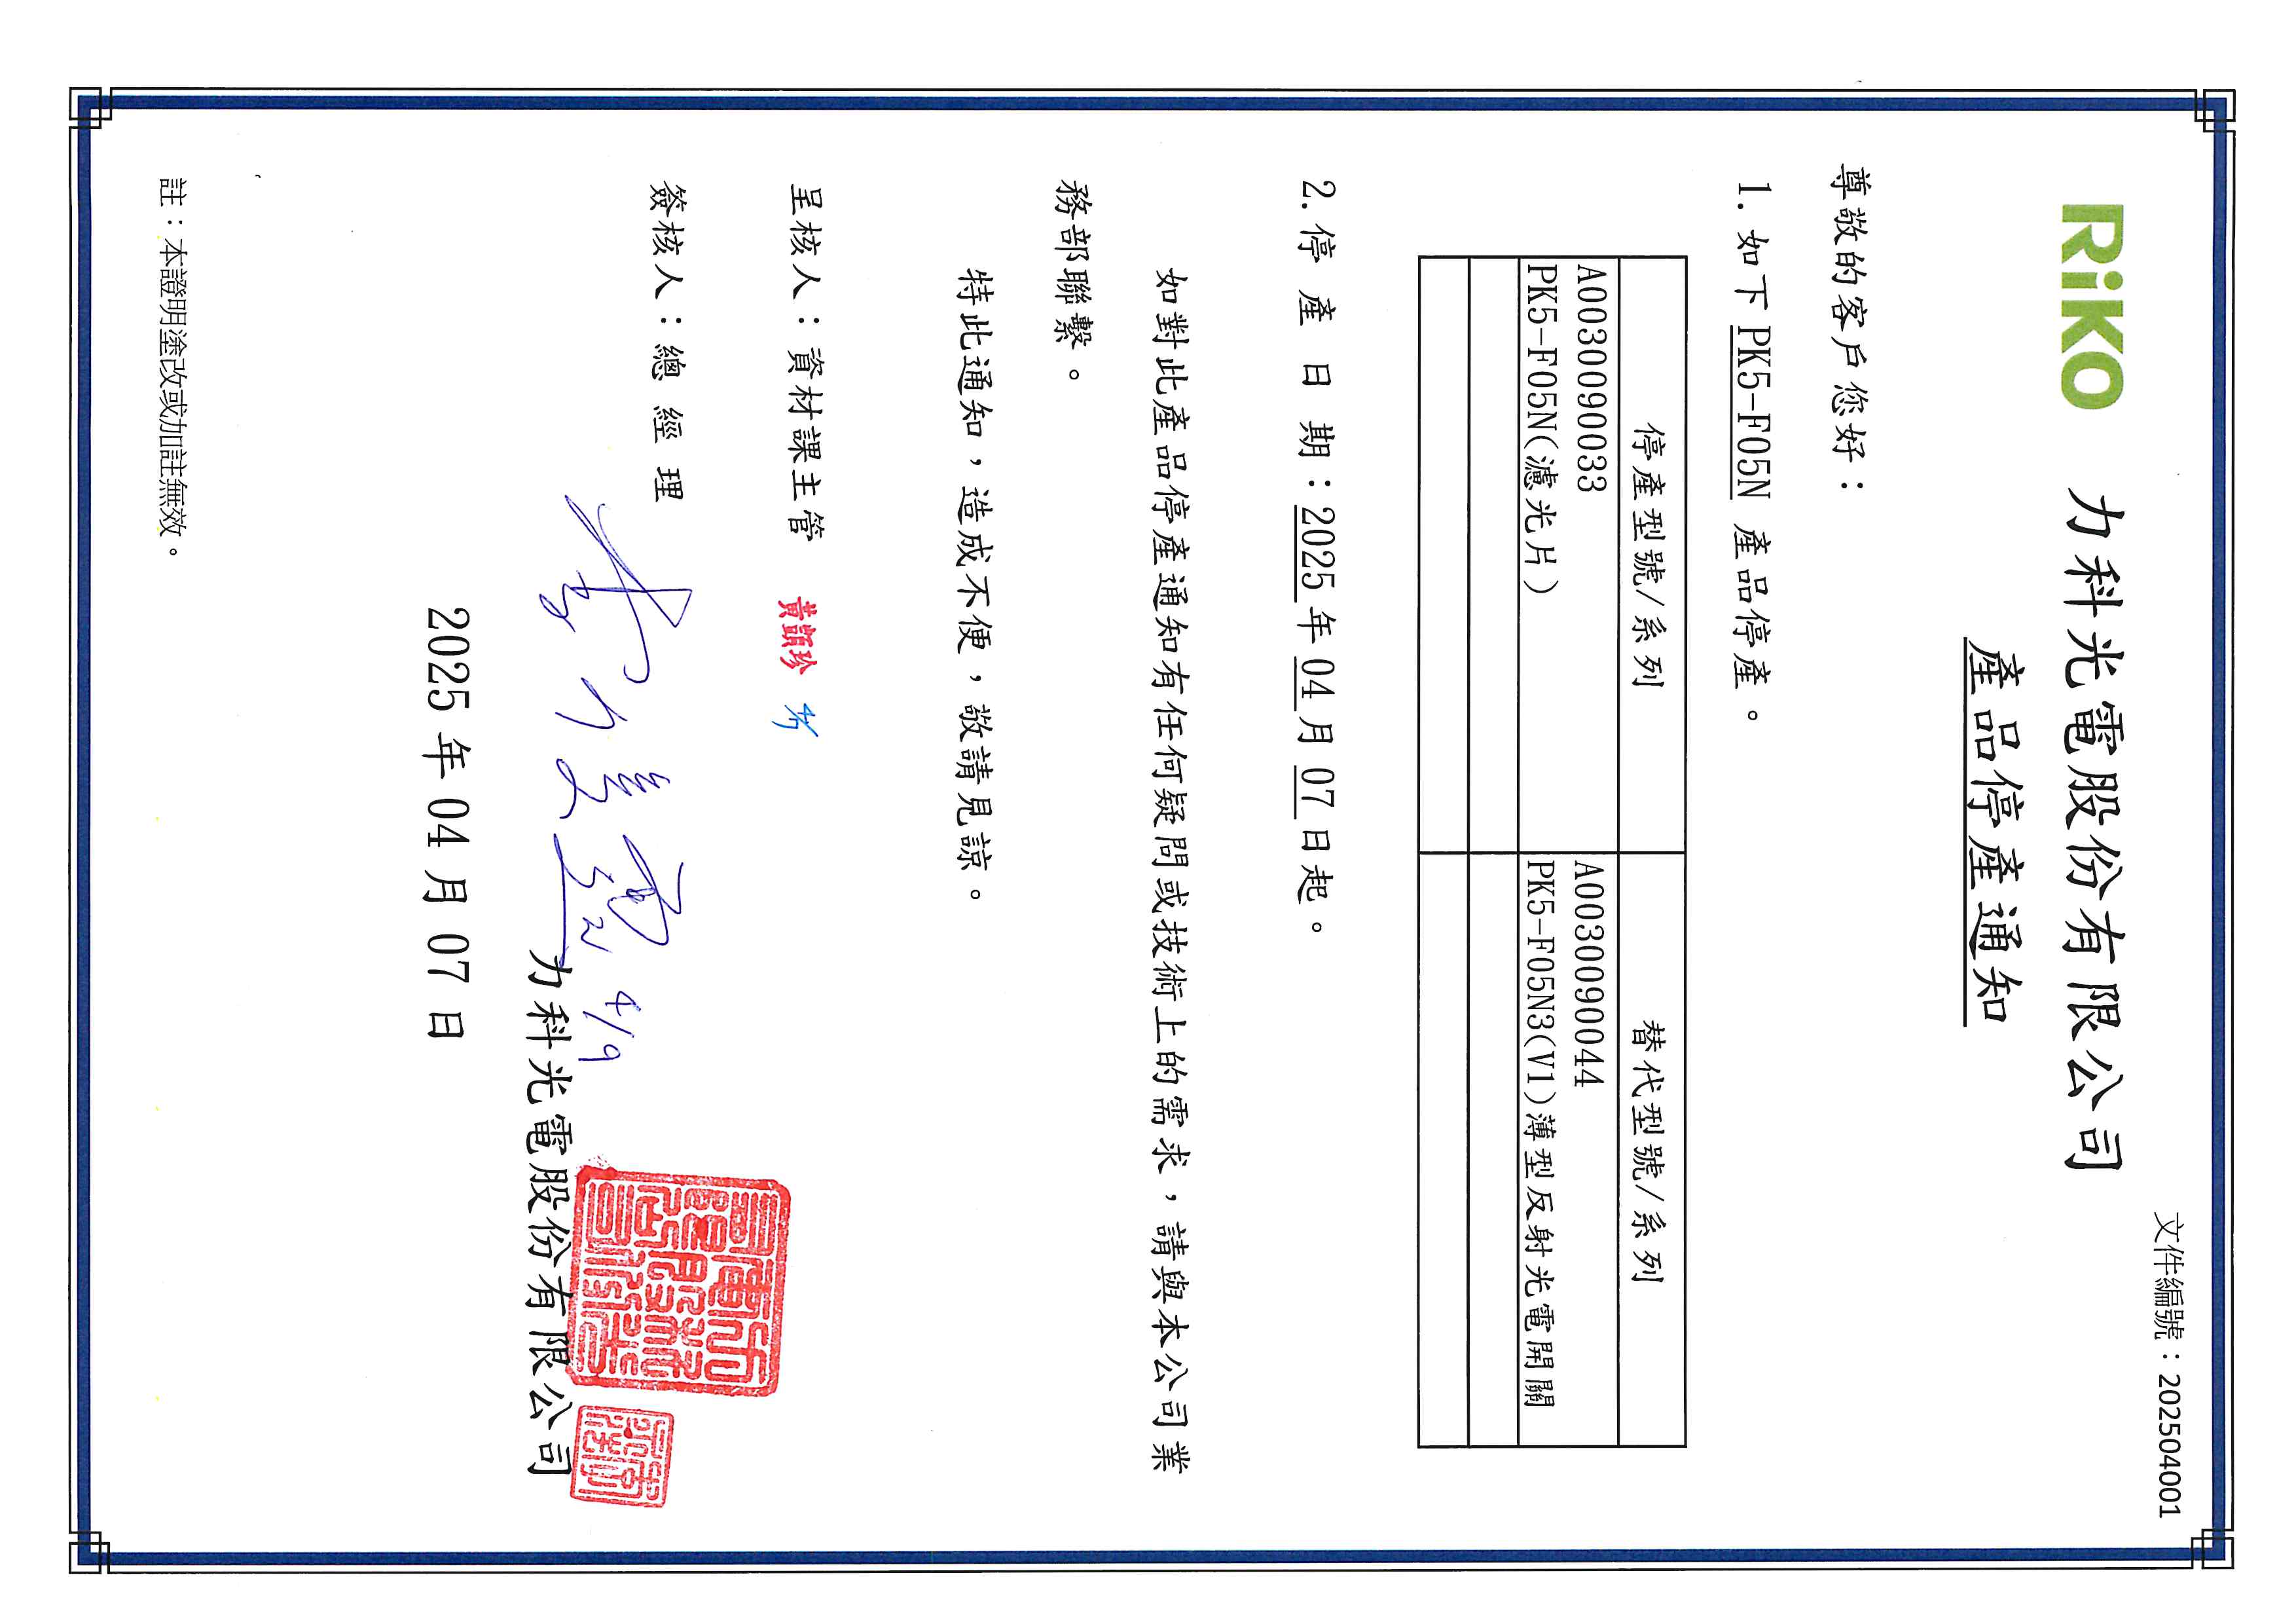 文件編號：202504001
RiKO 力科光電股份有限公司
產品停產通知
尊敬的客戶您好：
1. 如下 PK5-F05N 產品停產。
停產型號/系列 替代型號/系列
A003009003​3 A0030090044
PK5-F05N(濾光片) PK5-F05N3(V1)薄型反射光電開關
2.停 產 日 期：2025 年 04 月 07 日起。
如對此產品停產通知有任何疑問或技術上的需求，請與本公司業
務部聯繫。
特此通知，造成不便，敬請見諒。
呈核人：資材課主管 黃顗珍
簽核人：總 經 理
4/9
力科光電股份有限公司
2025 年 04 月 07 日
註：本證明塗改或加註無效。